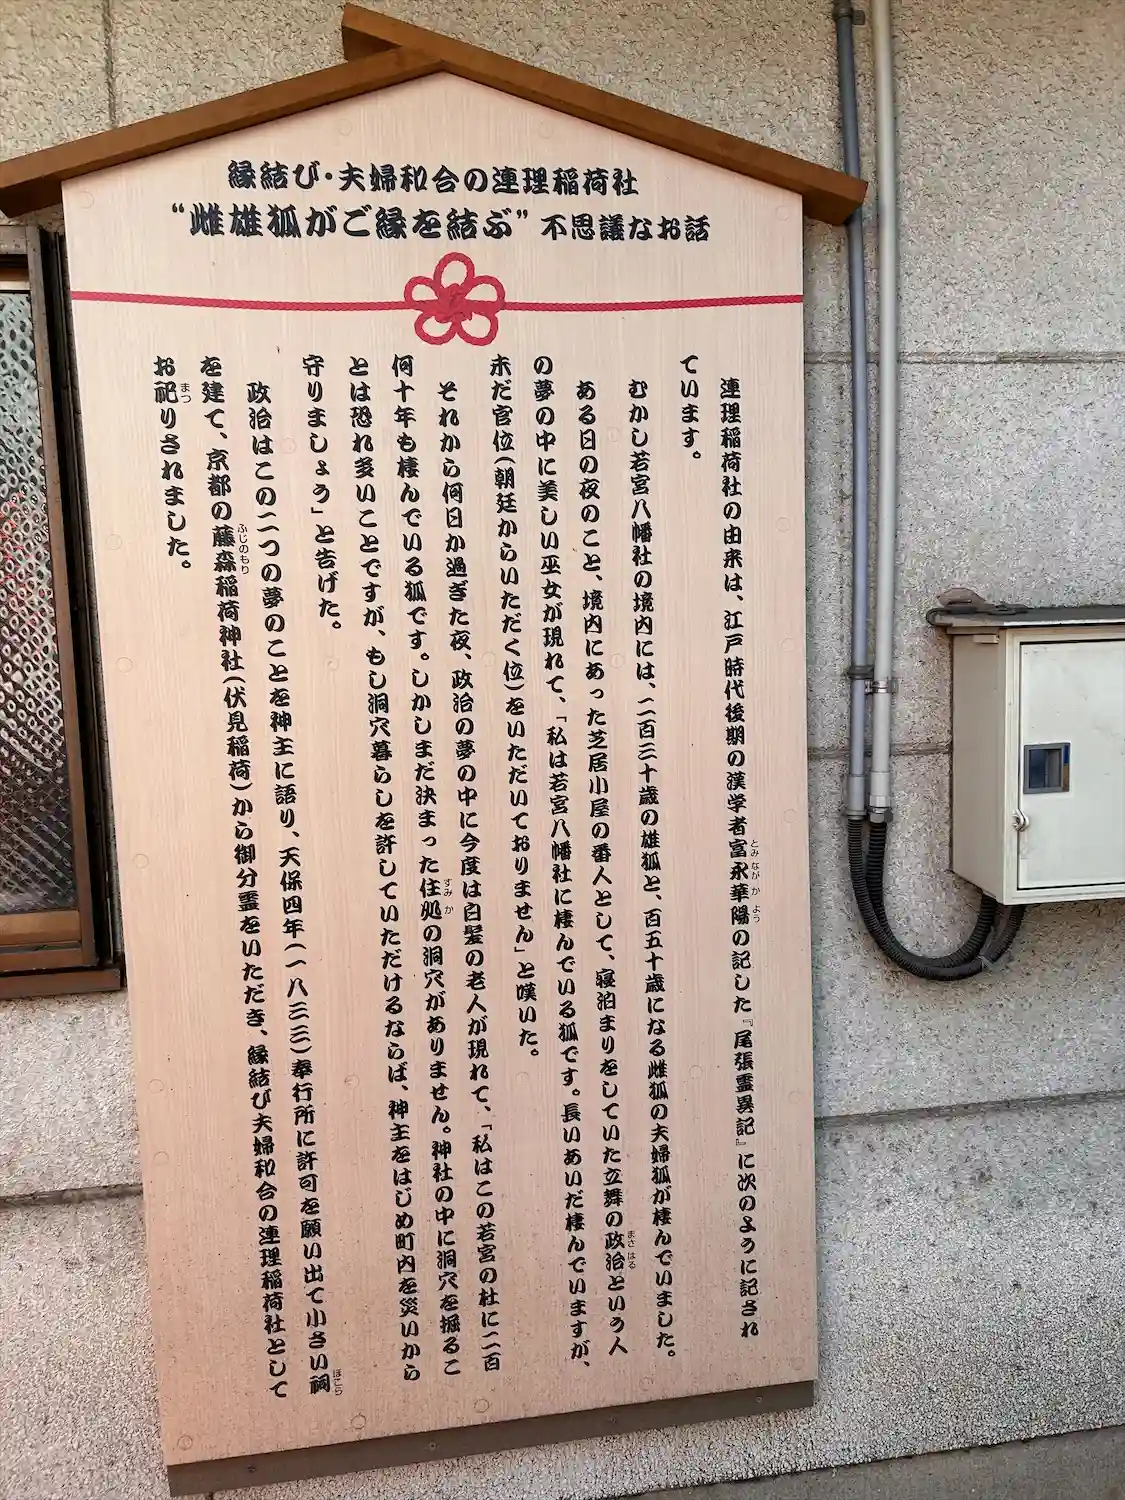 縁結び・夫婦和合の連理稲荷社
“雌雄狐がご縁を結ぶ”不思議なお話
連理稲荷社の由来は、江戸時代後期の漢学者富永華陽の記した『尾張霊異記』に次のように記され
とみ なが か よう
ています。
むかし若宮八幡社の境内には、二百三十歳の雄狐と、百五十歳になる雌狐の夫婦狐が棲んでいました。
ある日の夜のこと、境内にあった芝居小屋の番人として、寝泊まりをしていた立舞の政治という人
まさ はる
の夢の中に美しい巫女が現れて、「私は若宮八幡社に棲んでいる狐です。長いあいだ棲んでいますが、
未だ官位(朝廷からいただく位)をいただいておりません」と嘆いた。
それから何日か過ぎた夜、政治の夢の中に今度は白髪の老人が現れて、「私はこの若宮の杜に二百
何十年も棲んでいる狐です。しかしまだ決まった住処の洞穴がありません。神社の中に洞穴を掘るこ
すみ か
とは恐れ多いことですが、もし洞穴暮らしを許していただけるならば、神主をはじめ町内を災いから
守りましょう」と告げた。
政治はこの二つの夢のことを神主に語り、天保四年(一八三三)奉行所に許可を願い出て小さい祠
ほこら
を建て、京都の藤森稲荷神社(伏見稲荷)から御分霊をいただき、縁結び夫婦和合の連理稲荷社として
ふじのもり
お祀りされました。
まつ